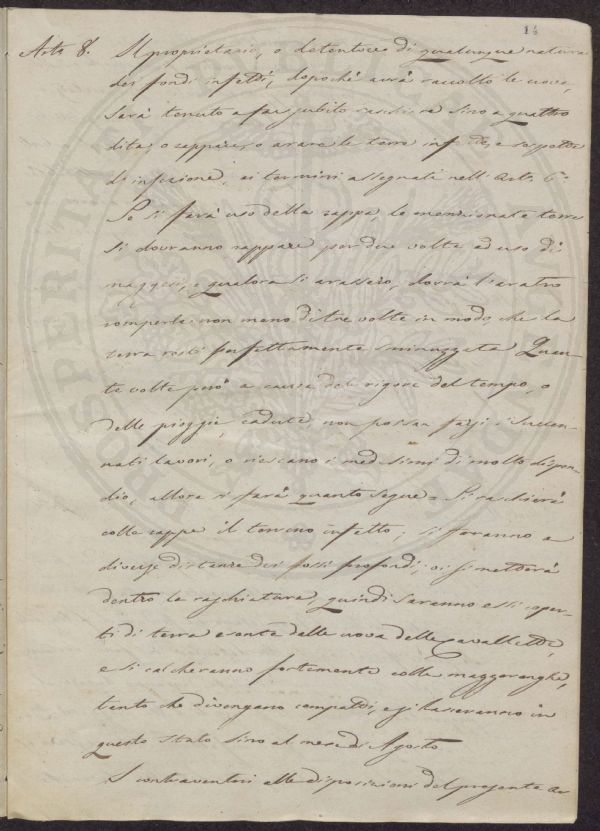 16
Art. 8. Il proprietario, o detentore di qualunque natura
dei fondi infetti, dopoché avrà raccolto le uova,
sarà tenuto a far subito raschiare sino a quattro
dita, o zappare, o arare le terre infette, e sospette
di infezione, ai termini assegnati nell'Art. 6.º
Se si farà uso della zappa, le menzionate terre
si dovranno zappare per due volte ad uso di
maggesi, e qualora si arassero, dovrà l'aratro
romperle non meno di tre volte in modo che la
terra resti perfettamente sminuzzata. Quan-
te volte però a causa del rigore del tempo, o
delle pioggie cadute, non possan farsi i sucen-
nati lavori, o riescano i medesimi di molto dispen-
dio, allora si farà quanto segue = Si raschierà
colle zappe il terreno infetto; si faranno a
diverse distanze dei fossi profondi; vi si metterà
dentro la raschiatura, quindi saranno essi coper-
ti di terra esente dalle uova delle Cavallette,
e si calcheranno fortemente colle
tanto che divengano compatti, e si lasceranno in
questo stato sino al mese di Agosto
I contraventori alle disposizioni del presente ar
PROSPERITATI PUBLICAE